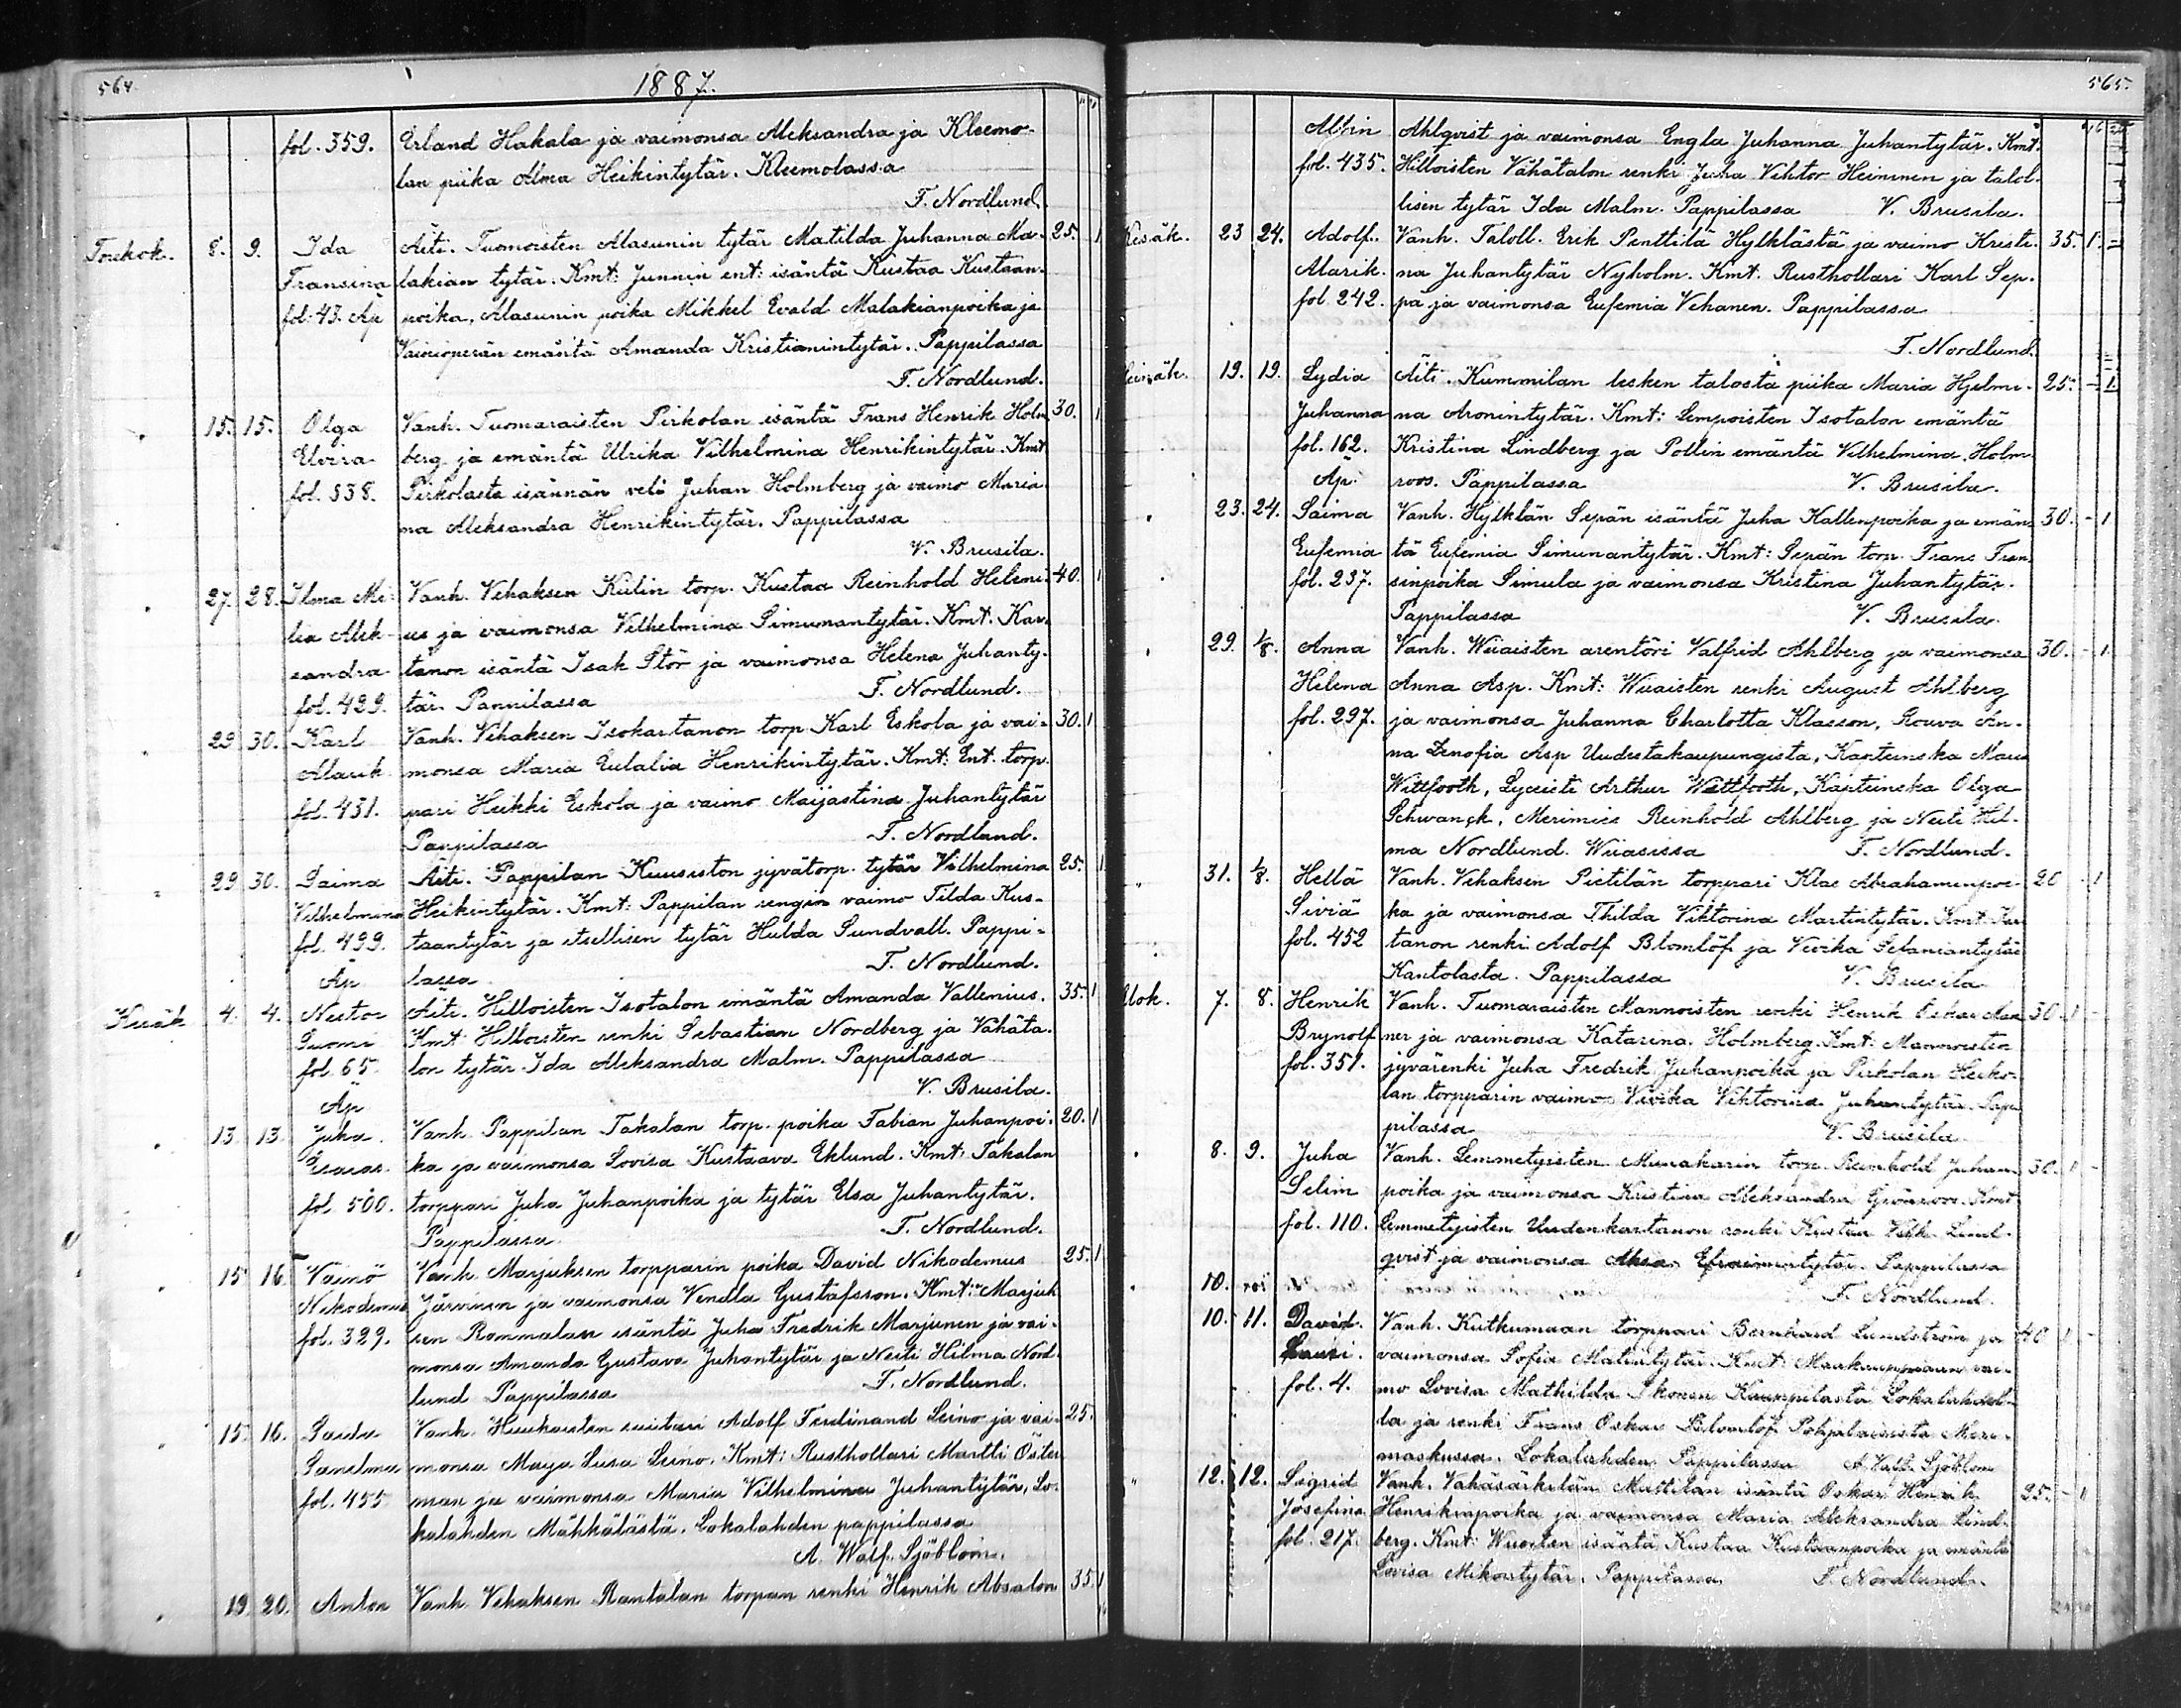 564.
1887.
fol. 359. Erland Hakala ja vaimonsa Aleksandra ja Kleemo-
lan piika Alma Heikintytär. Kleemolassa
F. Nordlund.
Toukok. 8. 9. Ida Äiti. Tuomoisten Alasunin tytär Matilda Juhanna Ma- 25. 1
Fransina lakian tytär. Kmt: Junnin ent: isäntä Kustaa Kustaan-
fol. 43. Äp poika, Alasunin poika Mikkel Evald Malakianpoika ja
Vainioperän emäntä Amanda Kristianintytär. Pappilassa
F. Nordlund.
15. 15. Olga Vanh. Tuomaraisten Pirkolan isäntä Frans Henrik Holm 30. 1
Elvira berg ja emäntä Ulrika Vilhelmina Henrikintytär. Kmt
fol. 338. Pirkolasta isännän veli Juhan Holmberg ja vaimo Maria
na Aleksandra Henrikintytär. Pappilassa
V. Brusila.
27. 28. Ilma Mi- Vanh. Vehaksen Külin torp. Kustaa Reinhold Heleni- 40. 1
lia Alek- us ja vaimonsa Vilhelmina Simunantytär. Kmt. Kar-
sandra tanon isäntä Isak Stör ja vaimonsa Helena Juhanty-
fol. 429. tär. Pappilassa F. Nordlund.
29 30. Karl Vanh. Vehaksen Isokartanon torp Karl Eskola ja vai- 30. 1
Alarik monsa Maria Eulalia Henrikintytär. Kmt: Ent. torp-
fol. 431. pari Heikki Eskola ja vaimo Maijastina Juhantytär
Pappilassa F. Nordlund.
29 30. Saima Äiti. Pappilan Kuusiston jyvätorp. tytär Vilhelmina 25. 1
Vilhelmina Heikintytär. Kmt: Pappilan rengin vaimo Tilda Kus-
fol. 499. taantytär ja itsellisen tytär Hulda Sundvall. Pappi-
Äp lassa F. Nordlund.
Kesäk 4. 4. Nestor Äiti. Hilloisten Isotalon emäntä Amanda Vallenius. 35. 1
Suomi Kmt: Hilloisten renki Sebastian Nordberg ja Vähäta-
fol. 65. lon tytär Ida Aleksandra Malm. Pappilassa
Äp V. Brusila.
13. 13. Juha Vanh. Pappilan Takalan torp. poika Fabian Juhanpoi- 20. 1
Esaias. ka ja vaimonsa Lovisa Kustaava Eklund. Kmt: Takalan
fol. 500. torppari Juha Juhanpoika ja tytär Elsa Juhantytär.
Pappilassa. F. Nordlund.
15 16. Väinö Vanh. Marjuksen torpparin poika David Nikodemus 25. 1
Nikodemus Järvinen ja vaimonsa Vendla Gustafsson. Kmt: Marjuk
fol. 329. sen Rommalan isäntä Juha Fredrik Marjunen ja vai-
monsa Amanda Gustava Juhantytär ja Neiti Hilma Nord-
lund Pappilassa F. Nordlund.
15. 16. Vanh. suutari Adolf Ferdinand Leino ja vai- 25.
monsa Maija Lusa Leino. Kmt: Rusthollari Martti Öster
fol. 455 man ja vaimonsa Maria Vilhelmina Juhantytär, Lo-
kalahden Mähkälästä. Lokalahden pappilassa
A. Walf. Sjöblom.
19. 20. Anton Vanh. Vehaksen Rantalan torpan renki Henrik Absalon 35. 1
565.
Albin Ahlqvist ja vaimonsa Engla Juhanna Juhantytär. Kmt.
fol. 435. Hilloisten Vähätalon renki Juha Vihtor Heininen ja talol-
lisen tytär Ida Malm. Pappilassa V. Brusila.
Kesäk. 23 24. Adolf Vanh. Taloll. Erik Penttilä Hylklästä ja vaimo Kristi- 35. 1. -
Alarik na Juhantytär Nyholm. Kmt. Rusthollari Karl Sep-
fol. 242. pä ja vaimonsa Eufemia Vehanen. Pappilassa
F. Nordlund.
Heinäk. 19. 19. Lydia Äiti. Kummilan lesken talosta piika Maria Hjelmi- 25. - 1.
Juhanna na Aronintytär. Kmt: Lempoisten Isotalon emäntä
fol. 162. Kristina Lindberg ja Pollin emäntä Vilhelmina Holm-
Äp. roos. Pappilassa V. Brusila.
23. 24. Saima Vanh. Hylklän Sepän isäntä Juha Kallenpoika ja emän 30. - 1
Eufemia tä Eufemia Simunantytär. Kmt: Sepän torp. Frans Fran
fol. 237. sinpoika Simula ja vaimonsa Kristina Juhantytär.
Pappilassa V. Brusila.
29. 1/8. Anna Vanh. Wiiaisten arentöri Valfrid Ahlberg ja vaimonsa 30. - 1
Helena Anna Asp. Kmt: Wiiaisten renki August Ahlberg
fol. 297. ja vaimonsa Juhanna Charlotta Klasson, Rouva An-
na Zenofia Asp Uudestakaupungista, Kapteinska
Wittfooth, Lyceisti Arthur Wittfooth, Kapteinska Olga
Schwanck, Merimies Reinhold Ahlberg ja Neiti Hil-
ma Nordlund. Wiiasissa F. Nordlund.
31. 1/8. Hellä Vanh. Vehaksen Pietilän torppari Klas Abrahaminpoi- 26 - 1
Siviä ka ja vaimonsa Thilda Viktorina Martintytär. Kmt: Kar
fol. 452 tanon renki Adolf Blomlöf ja Vivika
Kantolasta. Pappilassa V. Brusila
Elok. 7. 8. Henrik Vanh. Tuomaraisten Mannoisten renki Henrik Oskar 30. 1 -
Brynolf ner ja vaimonsa Katarina Holmberg. Kmt: Mannoisten
fol. 351. jyvärenki Juha Fredrik Juhanpoika ja Pirkolan Heiko-
lan torpparin vaimo Vivika Vihtorina Juhantytär. Pap-
pilassa V. Brusila
8. 9. Juha Vanh. Lemmetyisten torp. Reinhold Juhan- 30. 1 -
Selim poika ja vaimonsa Kristina Aleksandra Grönroos. Kmt
fol. 110. Lemmetyisten Uudenkartanon renki Kustaa Vilh. Lind-
qvist ja vaimonsa Efraimintytär. Pappilassa
10. F. Nordlund
10. 11. David Vanh. Kutkumaan torppari Bernhard Lundström ja 40 1 -
Lauri. vaimonsa Sofia Matintytär. Kmt: Maakauppiaan vai-
fol. 4. mo Lovisa Mathilda Ikonen Kauppilasta Lokalahdel-
la ja renki Frans Oskar Blomlöf Pohjalaisista
maskussa. Lokalahden Pappilassa A. Walf. Sjöblom
12. 12. Sigrid Vanh. Vähäsärkilän Mattilan isäntä Oskar Henrik 25. - 1
Josefina Henrikinpoika ja vaimonsa Maria Aleksandra Lind-
fol. 217. berg. Kmt: isäntä Kustaa Kustaanpoika ja emäntä
Lovisa Mikontytär. Pappilassa F. Nordlund.